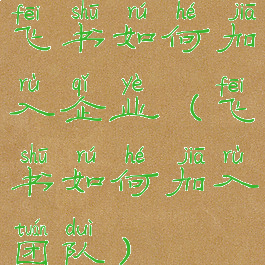 fēi shū rú hé jiā
飞书如何加
rù qǐ yè fēi
入企业(飞
shū rú hé jiā rù
书如何加入
tuán duì
团队)